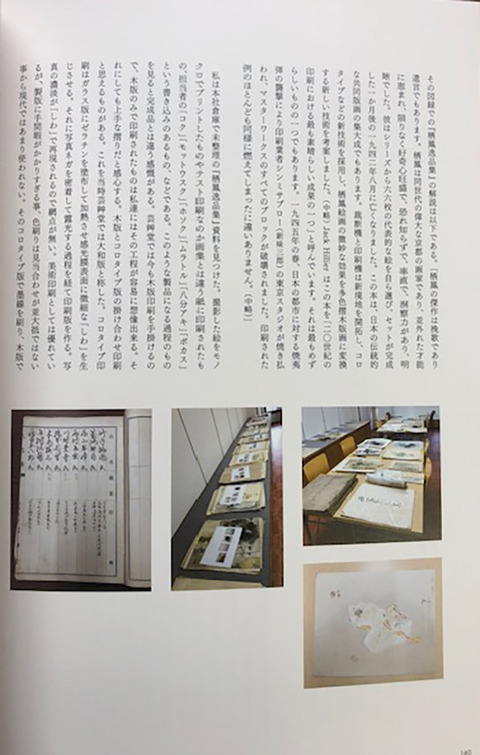 その図録での「栖鳳逸品集」の解説は以下である。「栖鳳の傑作は挽歌であり
遺言でもあります。栖鳳は同世代の偉大な京都の画家であり、並外れた才能
に恵まれ、限りなく好奇心旺盛で、恐れ知らずで、率直で、洞察力があり、明
晰でした。彼はシリーズから六六枚の代表的な絵を自ら選び、セットが完成
した一か月後の一九四二年八月に亡くなりました。この本は、日本の伝統的
な共同版画の集大成でもあります。裁断機と印刷機は新境地を開拓し、コロ
タイプなどの新技術を採用し、栖鳳絵画の微妙な効果を多色摺木版画に変換
する新しい技術を考案しました。(中略) Jack Hillier はこの本を「二〇世紀の
印刷における最も素晴らしい成果の一つ」と呼んでいます。それは最もめず
らしいものの一つでもあります。一九四五年の春、日本の都市に対する焼夷
弾の襲撃により印刷業者シンミサブロー(新味三郎)の東京スタジオが焼き払
われ、マスターワークスのすべてのブロックが破壊されました。印刷された
例のほとんども同様に燃えてしまったに違いありません。(中略)」
私は本社倉庫で未整理の「栖鳳逸品集」資料を見つけた。撮影した絵をモノ
クロでプリントしたものやテスト印刷なのか画集とは違う紙に印刷されたも
の、担当者の「コク」「モットウスク」「ホソク」「ムラトル」「八分アキ」「ボカス」
という書き込みのあるもの、などである。このような製品になる過程のもの
を見ると完成品とは違う感慨がある。芸艸堂では今も木版印刷を手掛けるの
で、木版のみで印刷されたものは私達にはその工程が容易に想像出来る。そ
れにしても上手な摺りだと感心する。木版とコロタイプ版の掛け合わせ印刷
と思えるものがある。これを当時芸艸堂では大和版と称した。コロタイプ印
刷はガラス版にゼラチンを塗布して加熱させ感光膜表面に微細な「しわ」を生
じさせる。それに写真ネガを密着して露光する過程を経て印刷版を作る。写
真の濃淡が「しわ」で再現されるので網点が無い。美術印刷としては優れてい
るが、製版に手間暇がかかりすぎる事、色刷りは見当合わせが並大抵ではない
事から現代ではあまり使われない。そのコロタイプ版で墨線を刷り、木版で